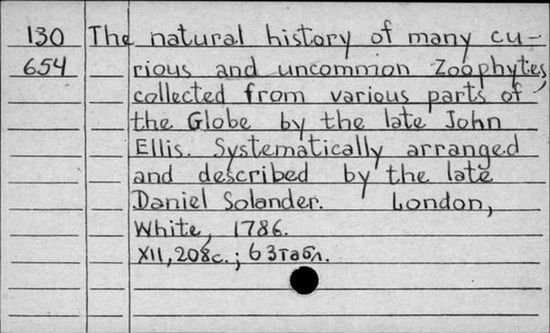 130 The natural history of many cu-
654 rious and uncommon Zoophytes,
collected from various parts of
the Globe by the late John
Ellis. Systematically arranged
and described by the late
Daniel Solander. London,
White, 1786.
XII, 208с.; 63табл.